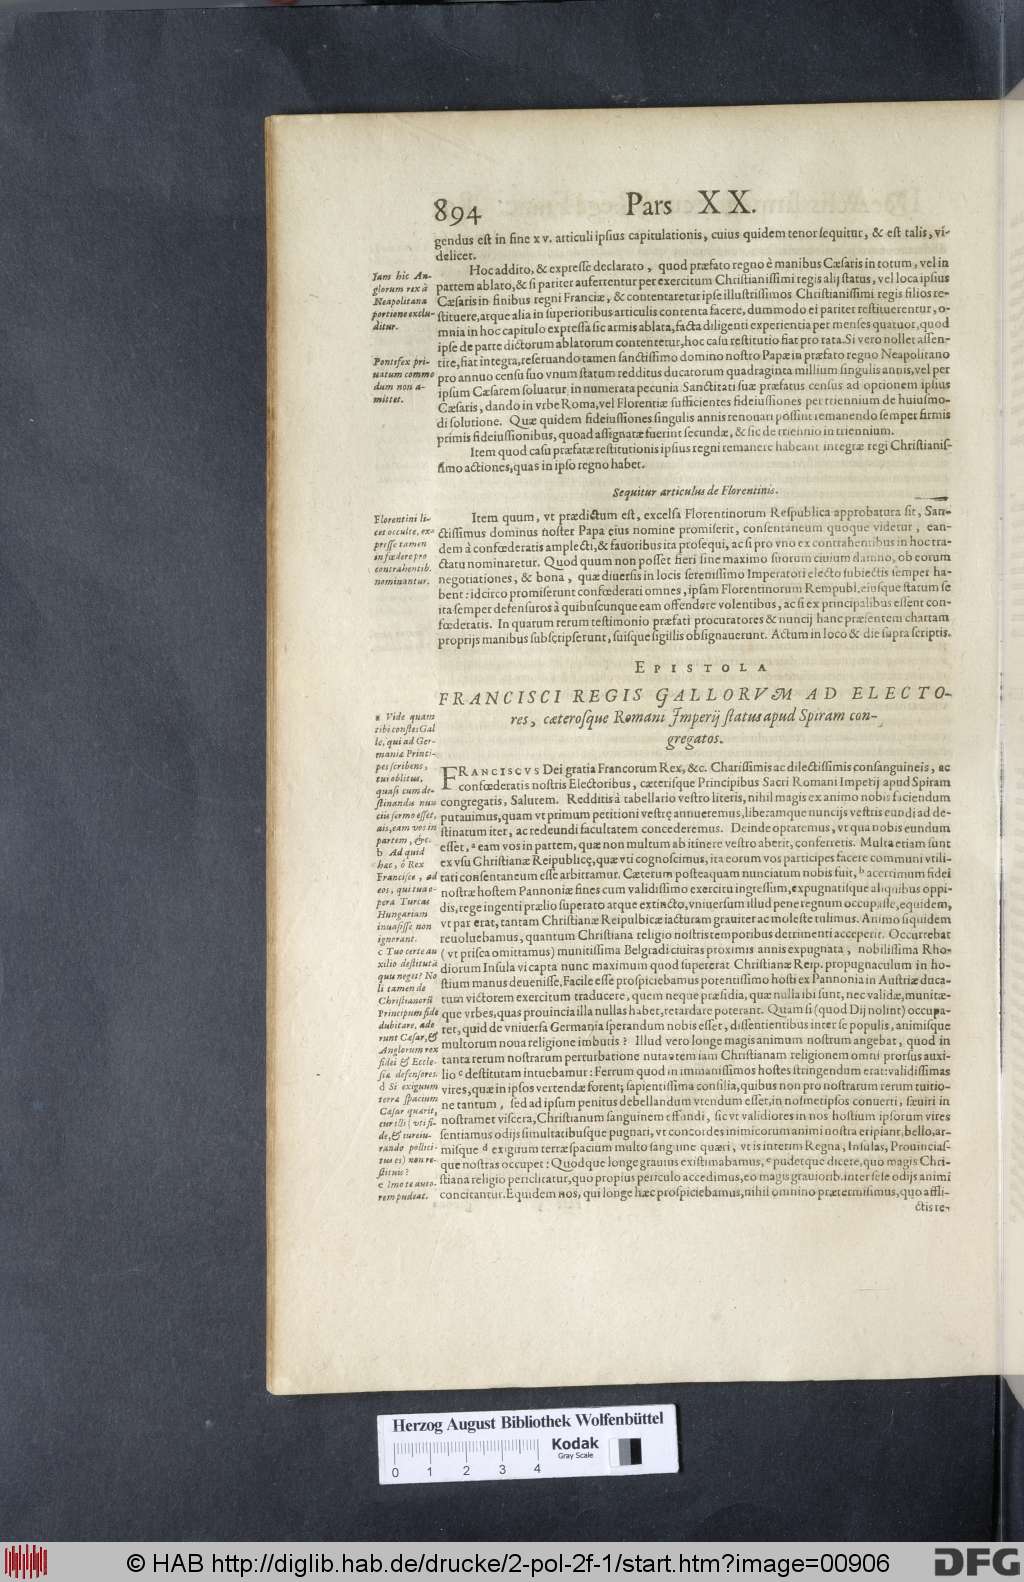 894
Pars XX.
gendus est in fine xv. articuli ipsius capitulationis, cuius quidem tenor sequitur, & est talis, vi-
delicet.
Iam hic An-
glorum rex à
Neapolitana
portione exclu-
ditur.
Hoc addito, & expresse declarato, quod præfato regno è manibus Cæsaris in totum, vel in
partem ablato, & si pariter auferrentur per exercitum Christianissimi regis alij status, vel loca ipsius
Cæsaris in finibus regni Franciæ, & contentaretur ipse illustrissimos Christianissimi regis filios re-
stituere, atque alia in superioribus articulis contenta facere, dummodo ei pariter restituerentur, o-
mnia in hoc capitulo expressa sic armis ablata, facta diligenti experientia per menses quatuor, quod
ipse de parte dictorum ablatorum contentetur, hoc casu restitutio fiat pro rata. Si vero nollet assen-
Pontifex pri-
uatum commo
dum non a-
mittet.
tire, fiat integra, reseruando tamen sanctissimo domino nostro Papæ in præfato regno Neapolitano
pro annuo censu suo vnum statum redditus ducatorum quadraginta millium singulis annis, vel per
ipsum Cæsarem soluatur in numerata pecunia Sanctitati suæ præfatus census ad optionem ipsius
Cæsaris, dando in vrbe Roma, vel Florentiæ sufficientes fideiussiones per triennium de huiusmo-
di solutione. Quæ quidem fideiussiones singulis annis renouari possint remanendo semper firmis
primis fideiussionibus, quoad assignatæ fuerint secundæ, & sic de triennio in triennium.
Item quod casu præfatæ restitutionis ipsius regni remanere habeant integræ regi Christianis-
simo actiones, quas in ipso regno habet.
Sequitur articulus de Florentinis.
Florentini li-
cet occulte, ex-
presse tamen
in fœdere pro
contrahentib.
nominantur.
Item quum, vt prædictum est, excelsa Florentinorum Respublica approbatura sit, San-
ctissimus dominus noster Papa eius nomine promiserit, consentaneum quoque videtur, ean-
dem à confœderatis amplecti, & fauoribus ita prosequi, ac si pro vno ex contrahentibus in hoc tra-
ctatu nominaretur. Quod quum non posset fieri sine maximo suorum ciuium damno, ob eorum
negotiationes, & bona, quæ diuersis in locis serenissimo Imperatori electo subiectis semper ha-
bent: idcirco promiserunt confœderati omnes, ipsam Florentinorum Rempubl. eiusque statum se
ita semper defensuros à quibuscunque eam offendere volentibus, ac si ex principalibus essent con-
fœderatis. In quarum rerum testimonio præfati procuratores & nuncij hanc præsentem chartam
proprijs manibus subscripserunt, suisque sigillis obsignauerunt. Actum in loco & die supra scriptis.
EPISTOLA
FRANCISCI REGIS GALLORVM AD ELECTO-
res, cæterosque Romani Imperij status apud Spiram con-
gregatos.
a Vide quam
tibi constes Gal
le, qui ad Ger-
maniæ Princi-
pes scribens,
tui oblitus,
quasi cum de-
stinandis nun
ciis sermo esset,
ais, eam vos in
partem, &c.
b Ad quid
hæc, ô Rex
Francisce, ad
eos, qui tua o-
pera Turcas
Hungariam
inuasisse non
ignorant.
c Tuo certe au
xilio destitutã
quis neget? No
li tamen de
Christianorũ
Principum fide
dubitare, ade
runt Cæsar, &
Anglorum rex
fidei & Eccle-
siæ defensores.
d Si exiguum
terræ spacium
Cæsar quærit,
cur illi (vti fi-
de, & iureiu-
rando pollici-
tus es) non re-
stituis?
e Imo te auto-
rem pudeat.
FRANCISCVS Dei gratia Francorum Rex, &c. Charissimis ac dilectissimis consanguineis, ac
confœderatis nostris Electoribus, cæterisque Principibus Sacri Romani Imperij apud Spiram
congregatis, Salutem. Redditis à tabellario vestro literis, nihil magis ex animo nobis faciendum
putauimus, quam vt primum petitioni vestrę annueremus, liberamque nuncijs vestris eundi ad de-
stinatum iter, ac redeundi facultatem concederemus. Deinde optaremus, vt qua nobis eundum
esset, a eam vos in partem, quæ non multum ab itinere vestro aberit, conferretis. Multa etiam sunt
ex vsu Christianæ Reipublicę, quæ vti cognoscimus, ita eorum vos participes facere communi vtili-
tati consentaneum esse arbitramur. Cæterum posteaquam nunciatum nobis fuit, b acerrimum fidei
nostræ hostem Pannoniæ fines cum validissimo exercitu ingressum, expugnatisque aliquibus oppi-
dis, rege ingenti prælio superato atque extincto, vniuersum illud pene regnum occupasse, equidem,
vt par erat, tantam Christianæ Reipulbicæ iacturam grauiter ac moleste tulimus. Animo siquidem
reuoluebamus, quantum Christiana religio nostris temporibus detrimenti acceperit. Occurrebat
(vt prisca omittamus) munitissima Belgradi ciuitas proximis annis expugnata, nobilissima Rho-
diorum Insula vi capta nunc maximum quod supererat Christianæ Reip. propugnaculum in ho-
stium manus deuenisse, Facile esse prospiciebamus potentissimo hosti ex Pannonia in Austriæ duca-
tum victorem exercitum traducere, quem neque præsidia, quæ nulla ibi sunt, nec validæ, munitæ-
que vrbes, quas prouincia illa nullas habet, retardare poterant. Quam si (quod Dij nolint) occupa-
ret, quid de vniuersa Germania sperandum nobis esset, dissentientibus inter se populis, animisque
multorum noua religione imbutis? Illud vero longe magis animum nostrum angebat, quod in
tanta rerum nostrarum perturbatione nutantem iam Christianam religionem omni prorsus auxi-
lio c destitutam intuebamur: Ferrum quod in immanissimos hostes stringendum erat: validissimas
vires, quæ in ipsos vertendæ forent; sapientissima consilia, quibus non pro nostrarum rerum tuitio-
ne tantum, sed ad ipsum penitus debellandum vtendum esset, in nosmetipsos conuerti, sæuiri in
nostramet viscera, Christianum sanguinem effundi, sic vt validiores in nos hostium ipsorum vires
sentiamus odijs simultatibusque pugnari, vt concordes inimicorum animi nostra eripiant, bello, ar-
misque d exiguum terræ spacium multo sanguine quæri, vt is interim Regna, Insulas, Prouincias-
que nostras occupet: Quodque longe grauius existimabamus, e pudetque dicere, quo magis Chri-
stiana religio periclitatur, quo propius periculo accedimus, eo magis grauiorib. inter sese odijs animi
concitantur. Equidem nos, qui longe hæc prospiciebamus, nihil omnino prætermisimus, quo affli-
ctis re-
Herzog August Bibliothek Wolfenbüttel
Kodak
Gray Scale
0 1 2 3 4
© HAB http://diglib.hab.de/drucke/2-pol-2f-1/start.htm?image=00906
DFG